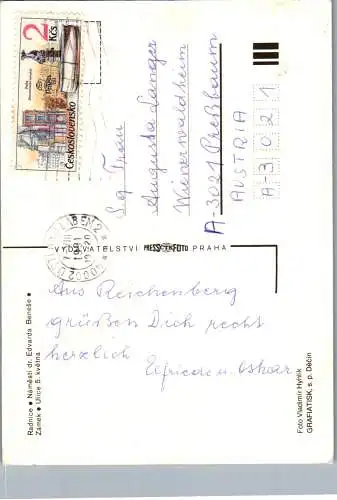 2
Kčs
Československo
LIBEREC 2
1991
Sg. Frau
Augusta Langer
Wienerwaldheim
A-3021 Preßbaum
AUSTRIA
A-3021
VYDAVATELSTVÍ PRESSFOTO PRAHA
Aus Reichenberg
grüßen Dich recht
herzlich
Radnice ● Náměstí dr. Edvarda Beneše ●
Zámek ● Ulice 5. května
Foto Vladimír Hyhlík
GRAFIATISK, s. p. Děčín